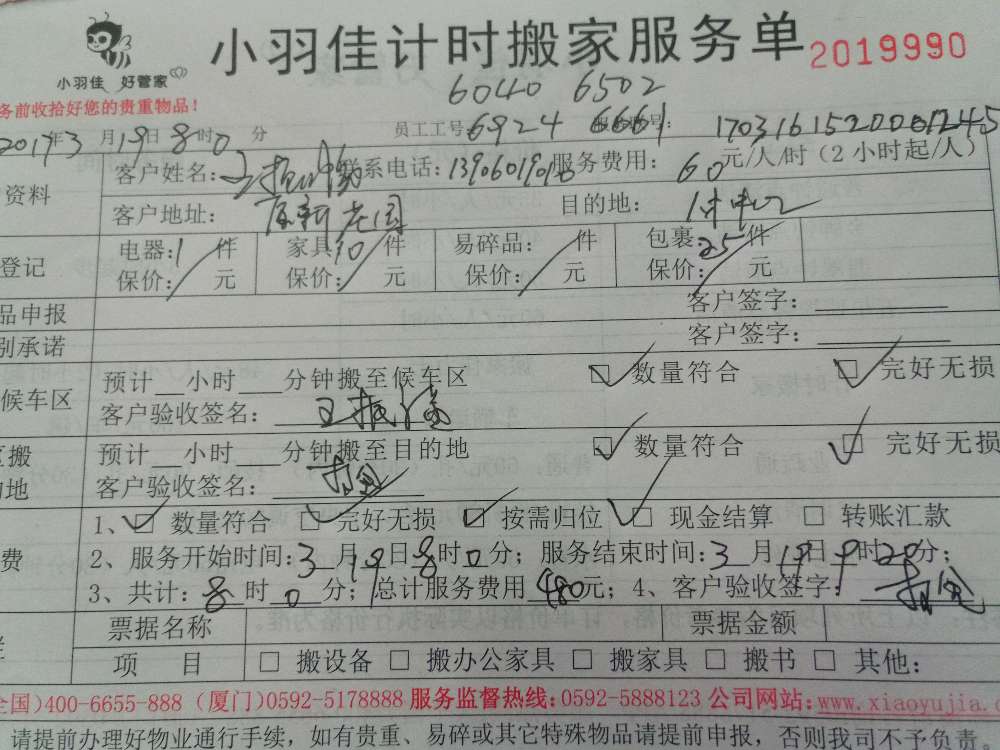 小羽佳计时搬家服务单 2019990
小羽佳 好管家
务前收拾好您的贵重物品！
6040 6502
2017年3月19日8时0分 员工工号 6924 6661 号: 1703161520001245
资料 客户姓名: 联系电话: 服务费用: 60 元/人/时（2小时起/人）
客户地址: 目的地:
登记 电器:1件 家具10件 易碎品: 件 包裹:25件
保价: 元 保价: 元 保价: 元 保价: 元
品申报 客户签字:
别承诺 客户签字:
候车区 预计 小时 分钟搬至候车区 数量符合 完好无损
客户验收签名:
区搬 预计 小时 分钟搬至目的地 数量符合 完好无损
的地 客户验收签名:
费 1、 数量符合 完好无损 按需归位 现金结算 转账汇款
2、服务开始时间:3月19日8时0分；服务结束时间:3月19日9时20分；
3、共计:8时0分；总计服务费用480元；4、客户验收签字:
票据名称 票据金额
项 目 搬设备 搬办公家具 搬家具 搬书 其他:
全国)400-6655-888 (厦门)0592-5178888 服务监督热线:0592-5888123 公司网站:www.xiaoyujia.c
请提前办理好物业通行手续，如有贵重、易碎或其它特殊物品请提前申报，否则我司不予负责。